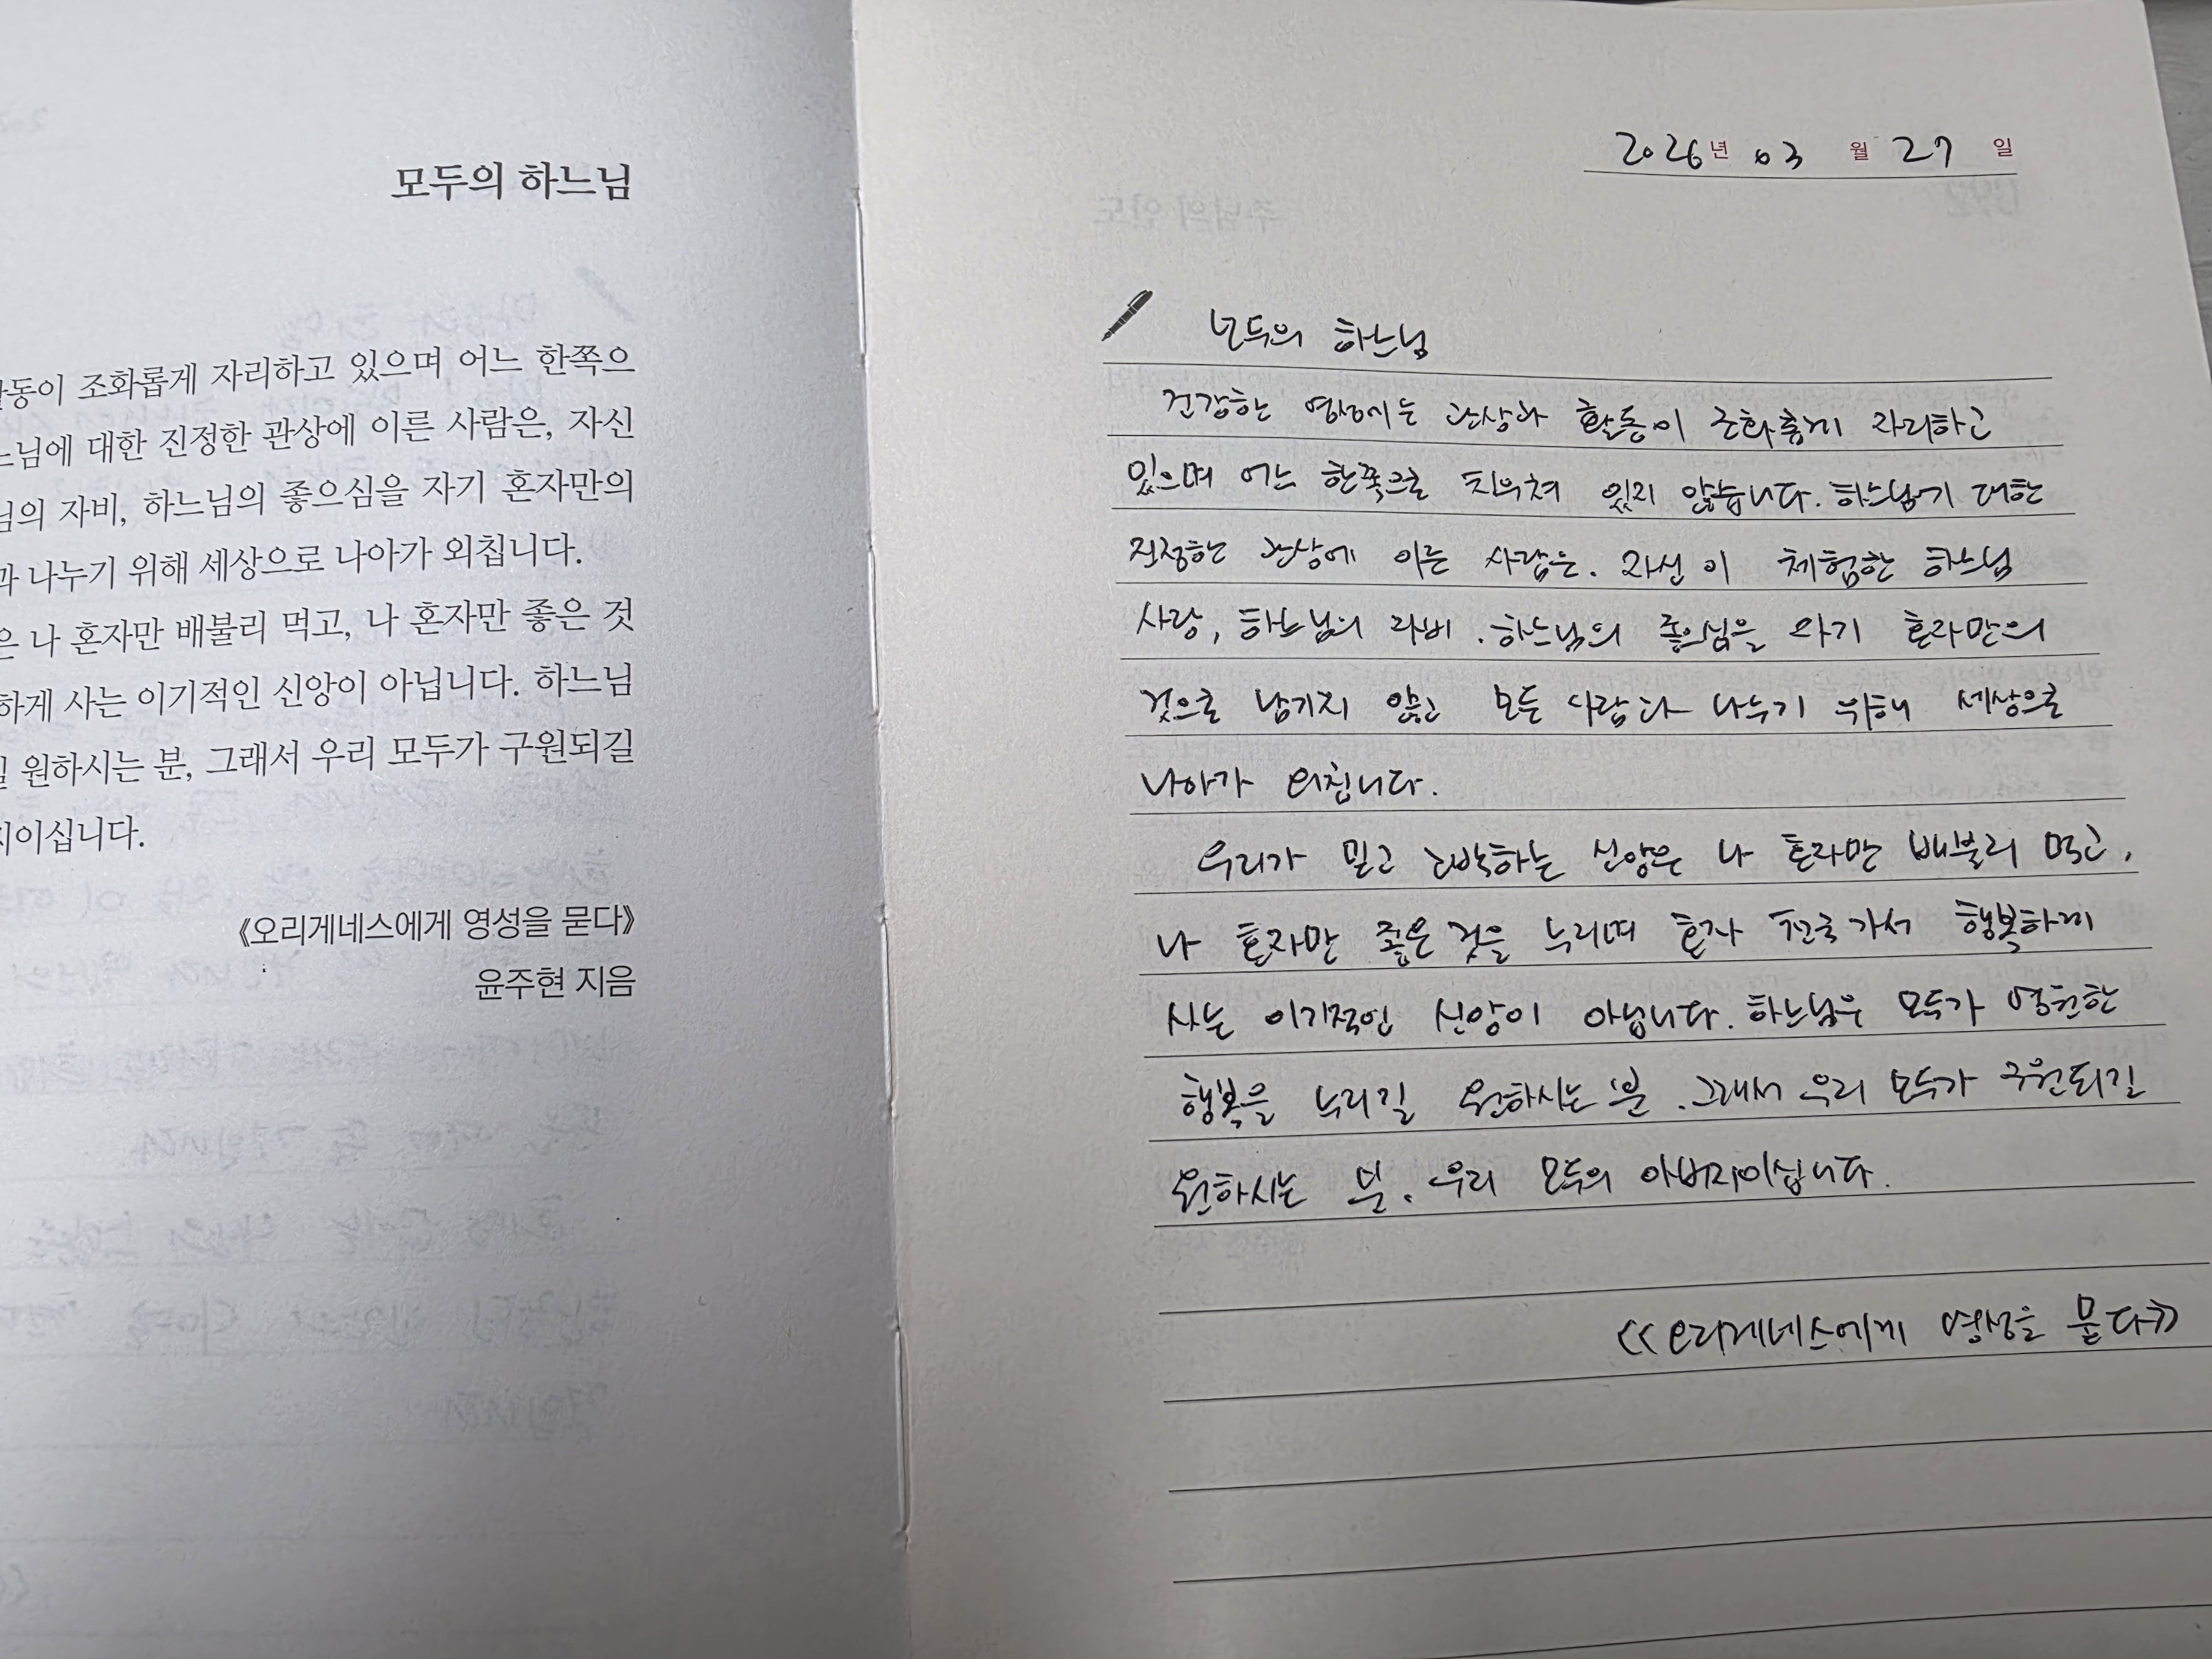 모두의 하느님
동이 조화롭게 자리하고 있으며 어느 한쪽으
느님에 대한 진정한 관상에 이른 사람은, 자신
님의 자비, 하느님의 좋으심을 자기 혼자만의
과 나누기 위해 세상으로 나아가 외칩니다.
은 나 혼자만 배불리 먹고, 나 혼자만 좋은 것
하게 사는 이기적인 신앙이 아닙니다. 하느님
원하시는 분, 그래서 우리 모두가 구원되길
지이십니다.
《오리게네스에게 영성을 묻다》
윤주현 지음
2026년 03월 27일
모두의 하느님
건강한 영성에는 관상과 활동이 조화롭게 자리하고
있으며 어느 한쪽으로 치우쳐 있지 않습니다. 하느님께 대한
진정한 관상에 이른 사람은. 자신이 체험한 하느님
사랑, 하느님의 자비. 하느님의 좋으심을 자기 혼자만의
것으로 남기지 않고 모든 사람과 나누기 위해 세상으로
나아가 외칩니다.
우리가 믿고 고백하는 신앙은 나 혼자만 배불리 먹고,
나 혼자만 좋은 것을 누리며 혼자 천국 가서 행복하게
사는 이기적인 신앙이 아닙니다. 하느님은 모두가 영원한
행복을 누리길 원하시는 분. 그래서 우리 모두가 구원되길
원하시는 분. 우리 모두의 아버지이십니다.
<<오리게네스에게 영성을 묻다>>